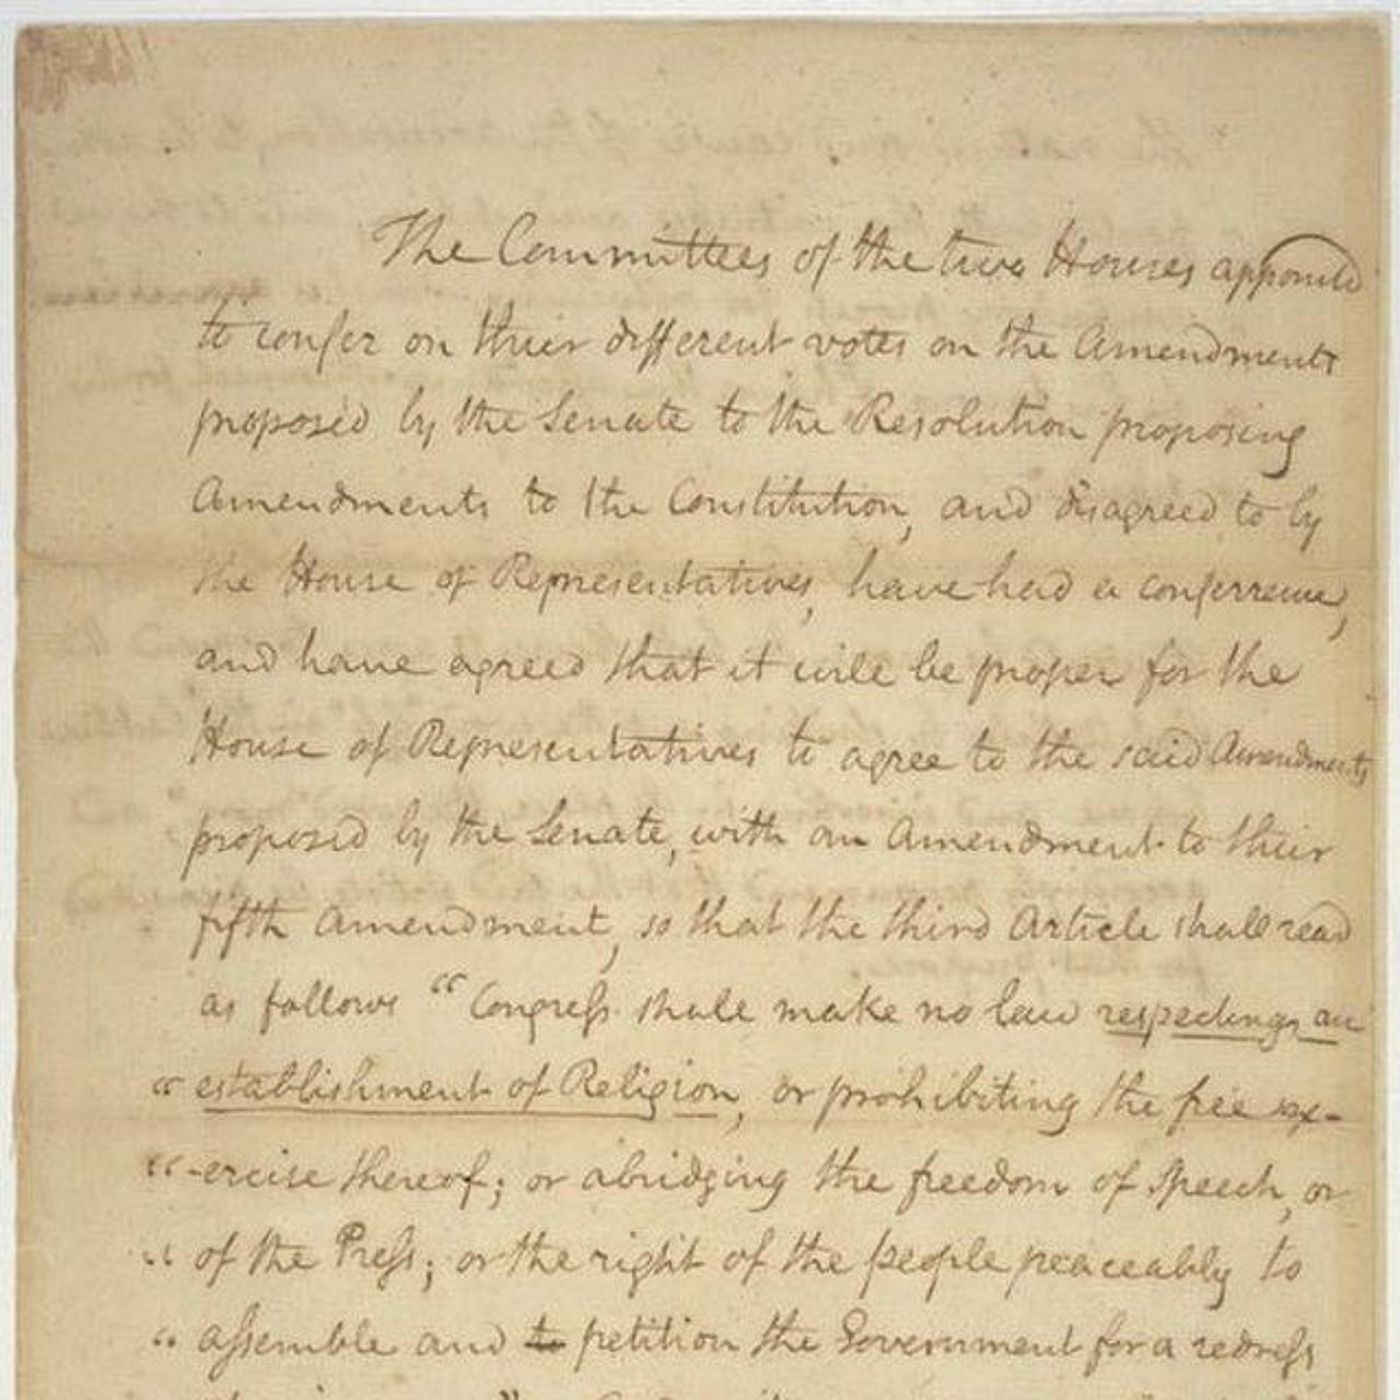 The Committees of the two Houses appointed
to confer on their different votes on the Amendments
proposed by the Senate to the Resolution proposing
Amendments to the Constitution, and disagreed to by
the House of Representatives, have had a conferrence,
and have agreed that it will be proper for the
House of Representatives to agree to the said Amendments
proposed by the Senate, with an Amendment to their
fifth Amendment, so that the third Article shall read
as follows “Congress shall make no law respecting an
“establishment of Religion, or prohibiting the free ex-
“-ercise thereof; or abridging the freedom of Speech, or
“of the Press; or the right of the people peaceably to
“assemble and to petition the Government for a redress